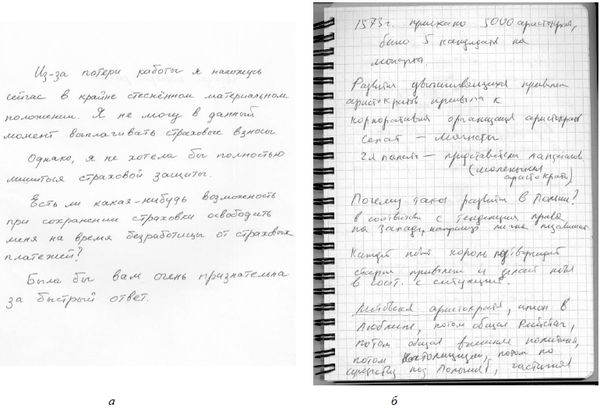 Из-за потери работы я нахожусь
сейчас в крайне стеснённом материальном
положении. Я не могу в данный
момент выплачивать страховые взносы.
Однако, я не хотела бы полностью
лишиться страховой защиты.
Есть ли какая-нибудь возможность
при сохранении страховки освободить
меня на время безработицы от страховых
платежей?
Была бы вам очень признательна
за быстрый ответ.
а
1573 г. приехало 5000 аристократов,
было 5 кандидатов на
монарха.
Развитие привилегий
аристократов привели к
корпоративной организации аристократов
Сенат — магнаты
2я палата — представители
(маленькая
аристократия)
Почему такое развитие в Польше?
в соответствии с тенденцией права
на западе, например
Каждый новый король подтверждает
старые привилегии и делает новые
в соот. с ситуацией.
Литовская аристократия, уния в
Люблине, потом общий Рейхстаг,
потом общая внешняя политика,
потом потом по
под Польшей, частичная
б